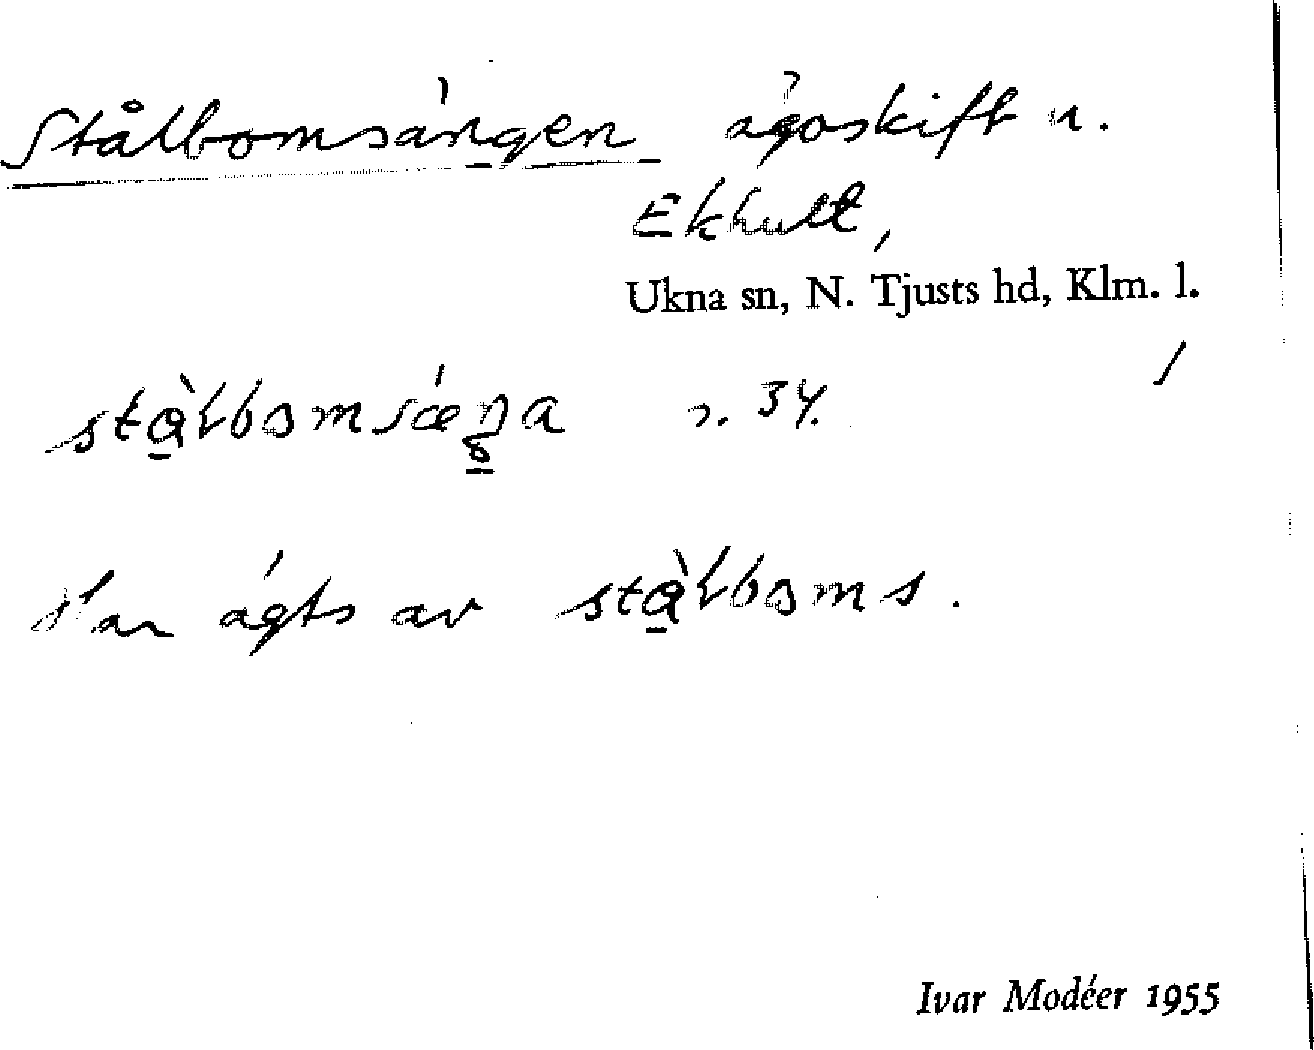 Stålbomsängen ägoskift u.
Ekhult,
Ukna sn, N. Tjusts hd, Klm. l.
stὰlbomsæŋa r. 34.
Har ägts av stὰlboms.
Ivar Modéer 1955